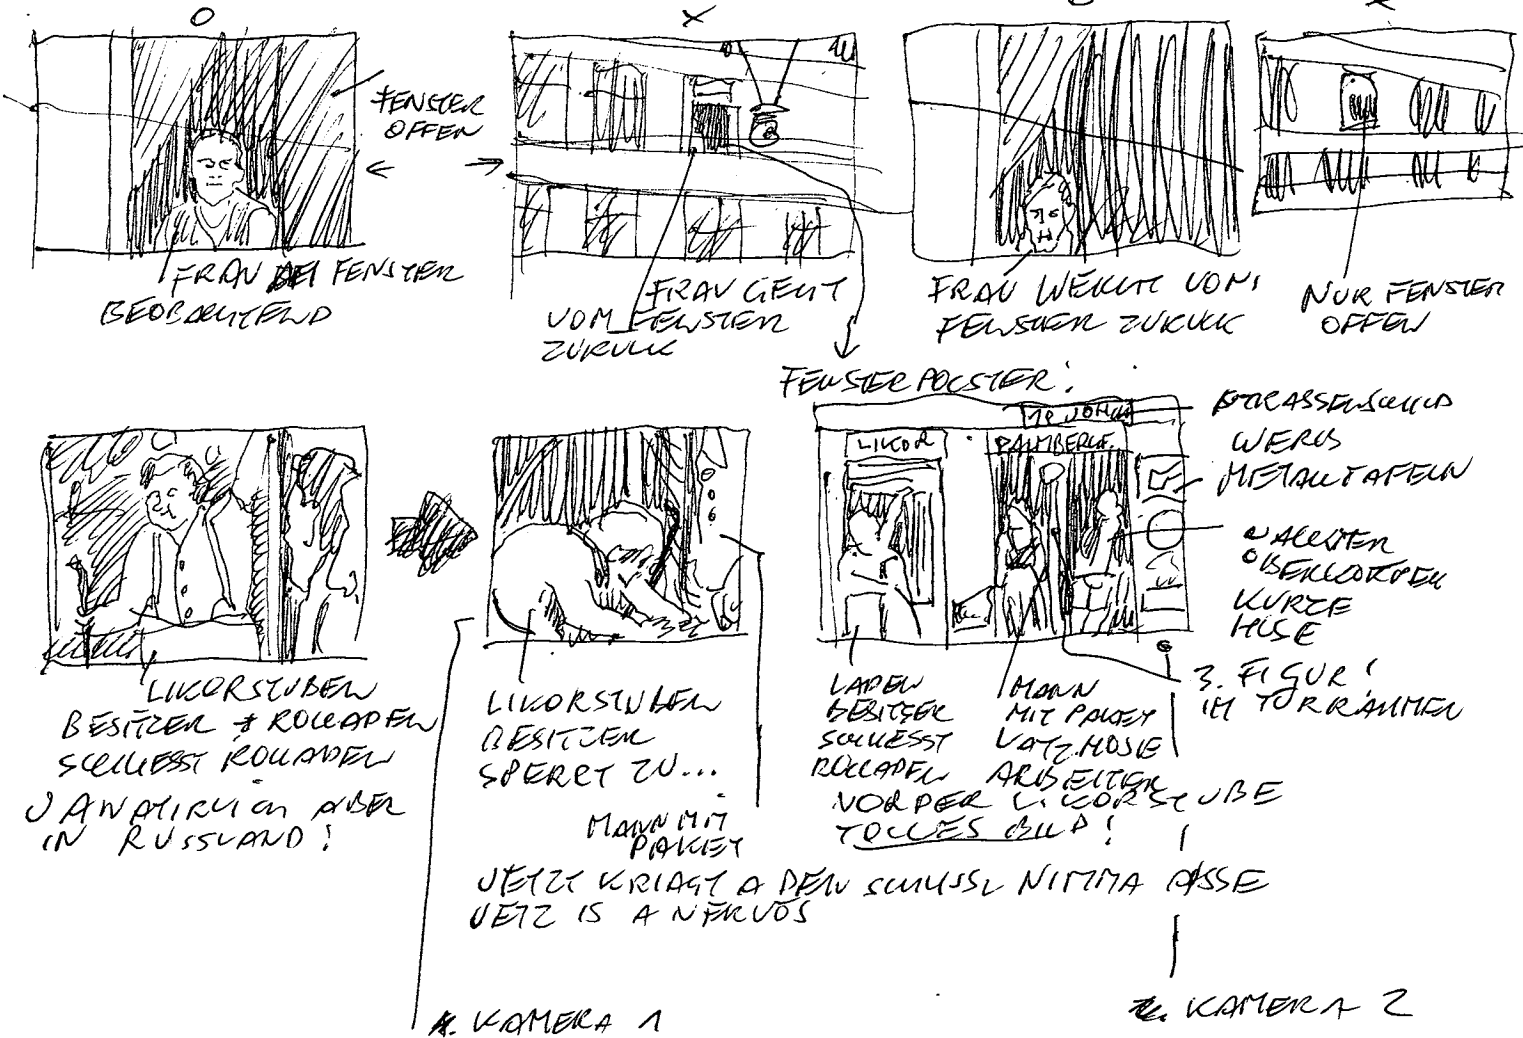 O
X
X
FENSTER
OFFEN
FRAU BEI FENSTER
BEOBACHTEND
FRAU GEHT
VOM FENSTER
ZURUCK
FRAU WEICHT VOM
FENSTER ZURUCK
NUR FENSTER
OFFEN
FENSTERPOLSTER!
LIKOR
STRASSENSCHILD
WERB
METALLTAFELN
NACKTER
OBERKORPER
KURZE
HOSE
3. FIGUR!
IM TORRAHMEN
LIKORSTUBEN
BESITZER + ROLLADEN
SCHLIESST ROLLADEN
JA NATIRLICH ABER
IN RUSSLAND!
LIKORSTUBEN
BESITZER
SPERRT ZU...
MANN MIT
PAKET
LADEN
BESITZER
SCHLIESST
ROLLADEN
MANN
MIT PAKET
LATZHOSE
ARBEITER
VOR DER LIKORSTUBE
TOLLES BILD!
JETZT KRIAGT A DEN SCHLISSL NIMMA
JETZ IS A NERVOS
KAMERA 1
KAMERA 2